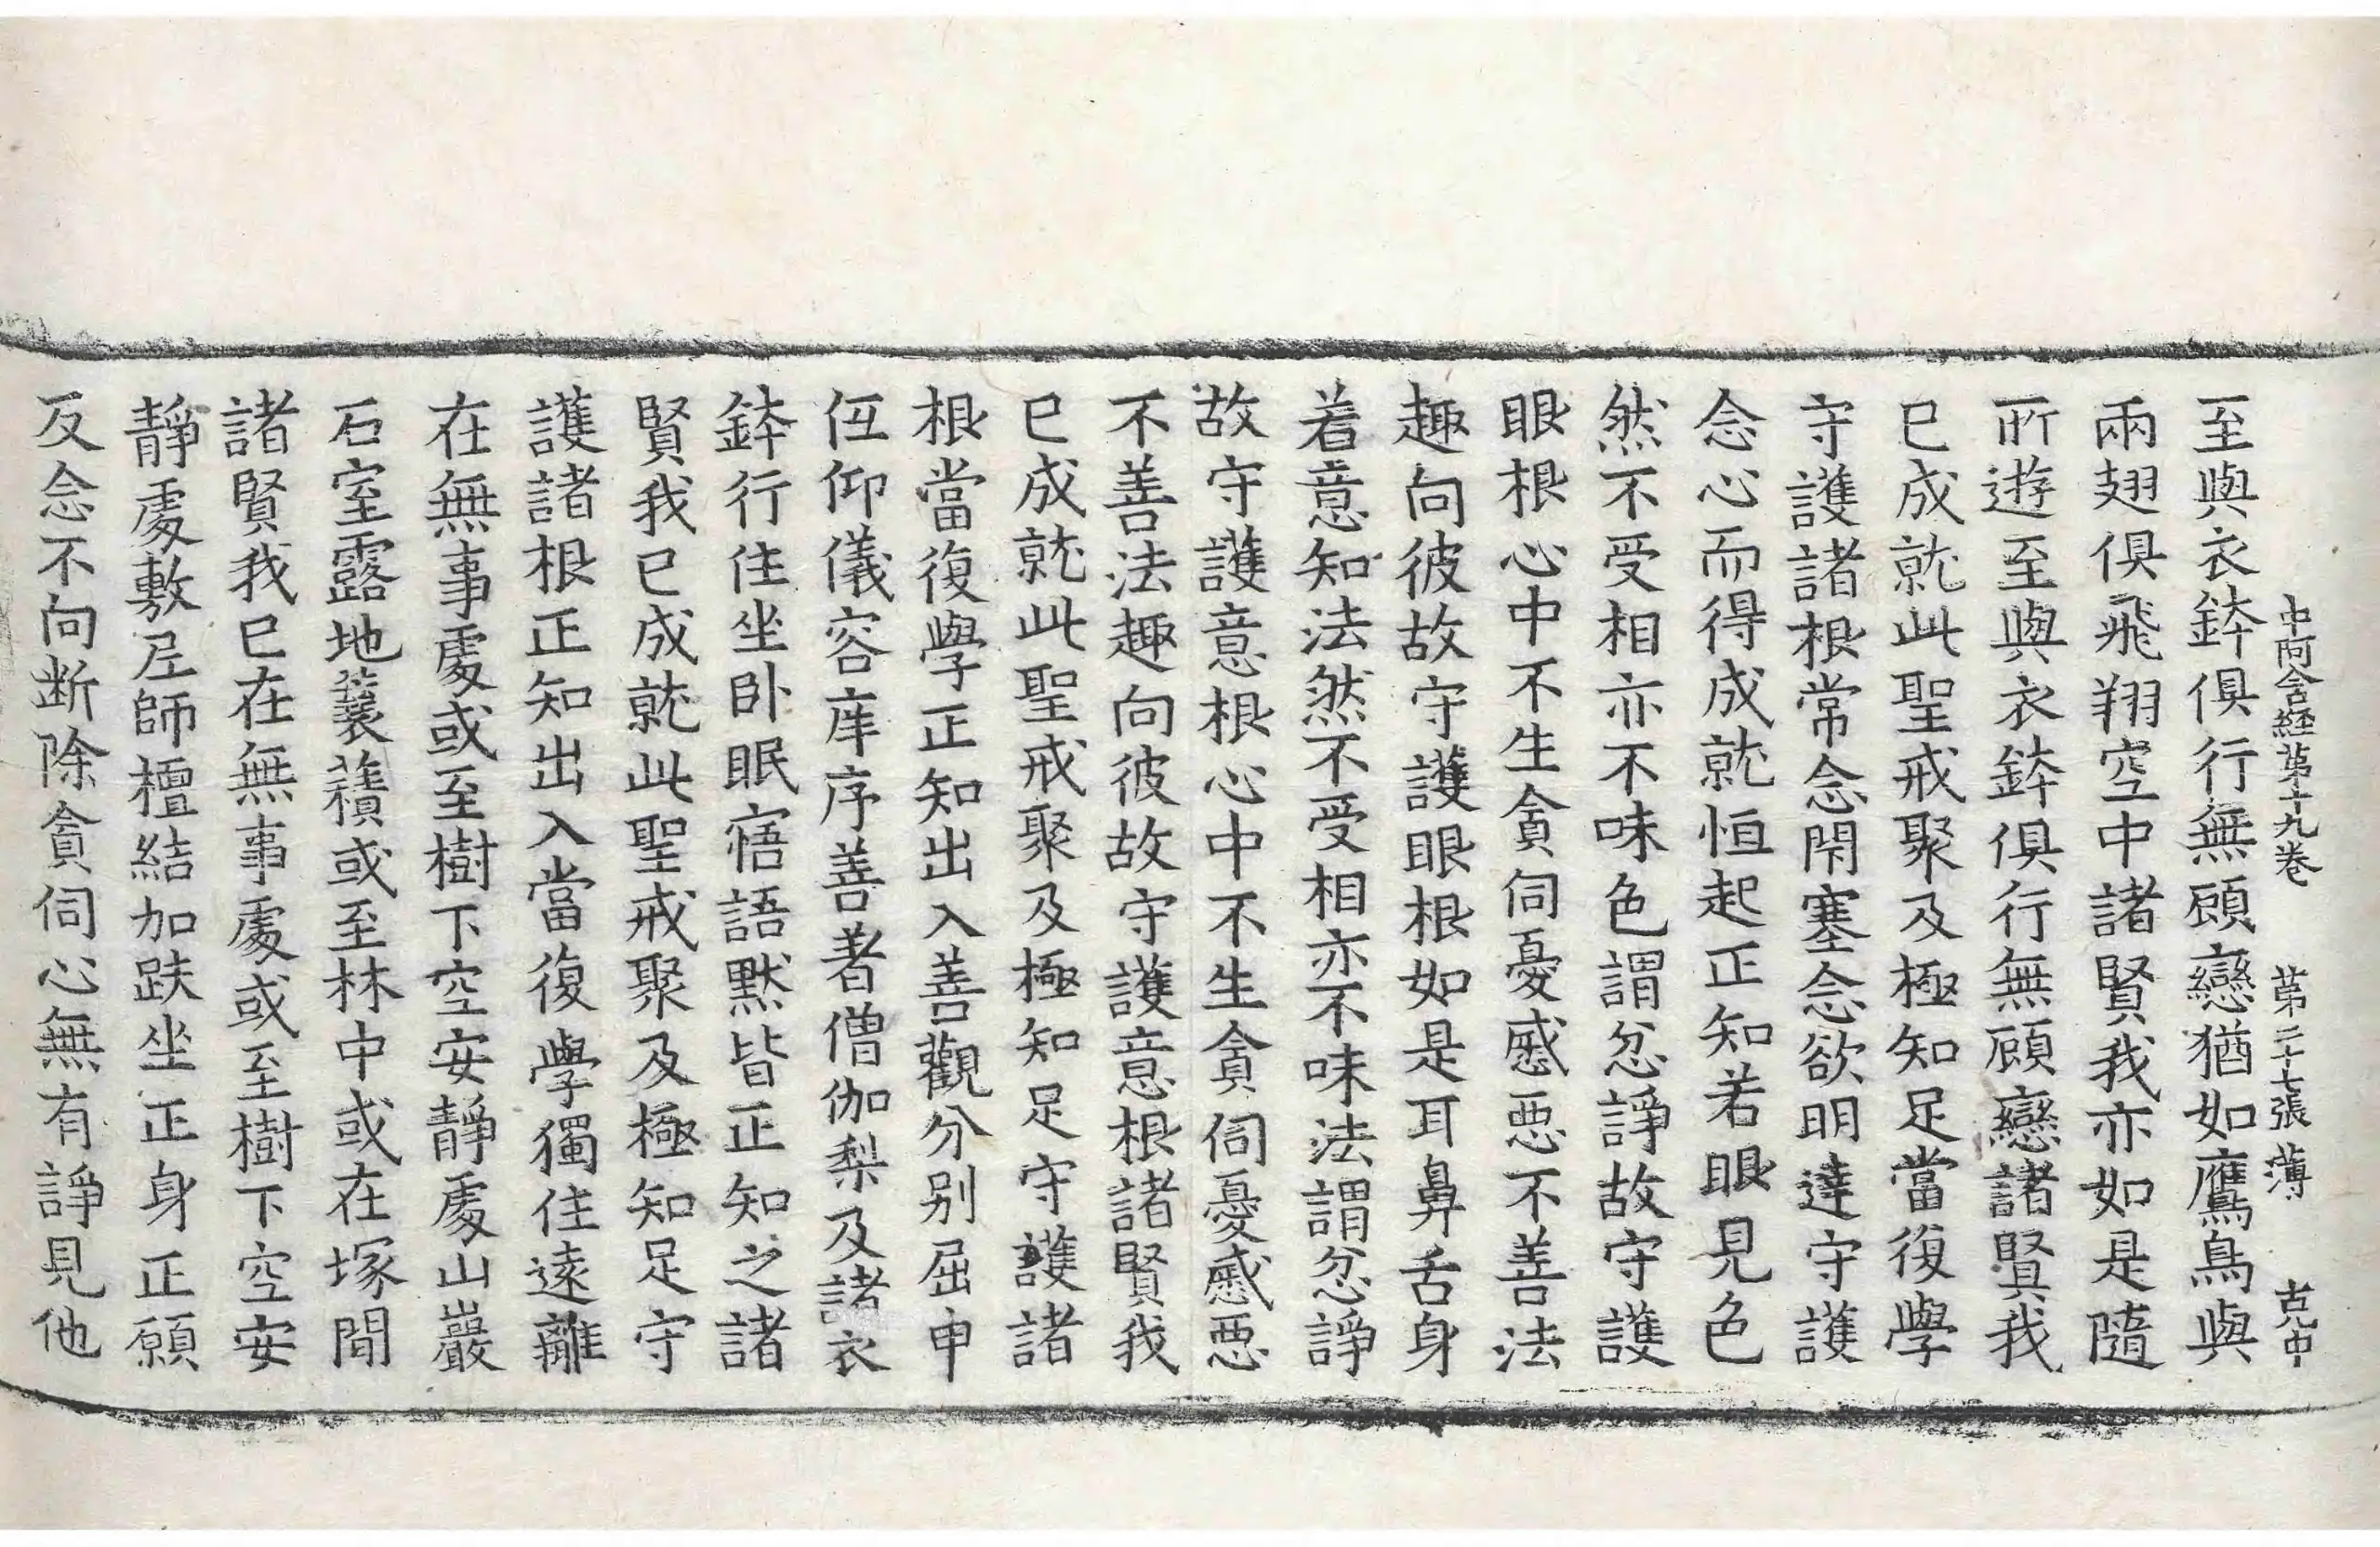 中阿含經第十九卷 第二十七張 薄 古克中
至與衣鉢俱行無顧戀猶如鷹鳥與
兩翅俱飛翔空中諸賢我亦如是隨
所遊至與衣鉢俱行無顧戀諸賢我
已成就此聖戒聚及極知足當復學
守護諸根常念閇塞念欲明達守護
念心而得成就恒起正知若眼見色
然不受相亦不味色謂忿諍故守護
眼根心中不生貪伺憂慼惡不善法
趣向彼故守護眼根如是耳鼻舌身
若意知法然不受相亦不味法謂忿諍
故守護意根心中不生貪伺憂慼惡
不善法趣向彼故守護意根諸賢我
已成就此聖戒聚及極知足守護諸
根當復學正知出入善觀分别屈申
低仰儀容庠序善著僧伽梨及諸衣
鉢行住坐卧眠寤語默皆正知之諸
賢我已成就此聖戒聚及極知足守
護諸根正知出入當復學獨住遠離
在無事處或至樹下空安靜處山巖
石室露地穰積或至林中或在塚間
諸賢我已在無事處或至樹下空安
靜處敷尼師檀結加趺坐正身正願
反念不向断除貪伺心無有諍見他